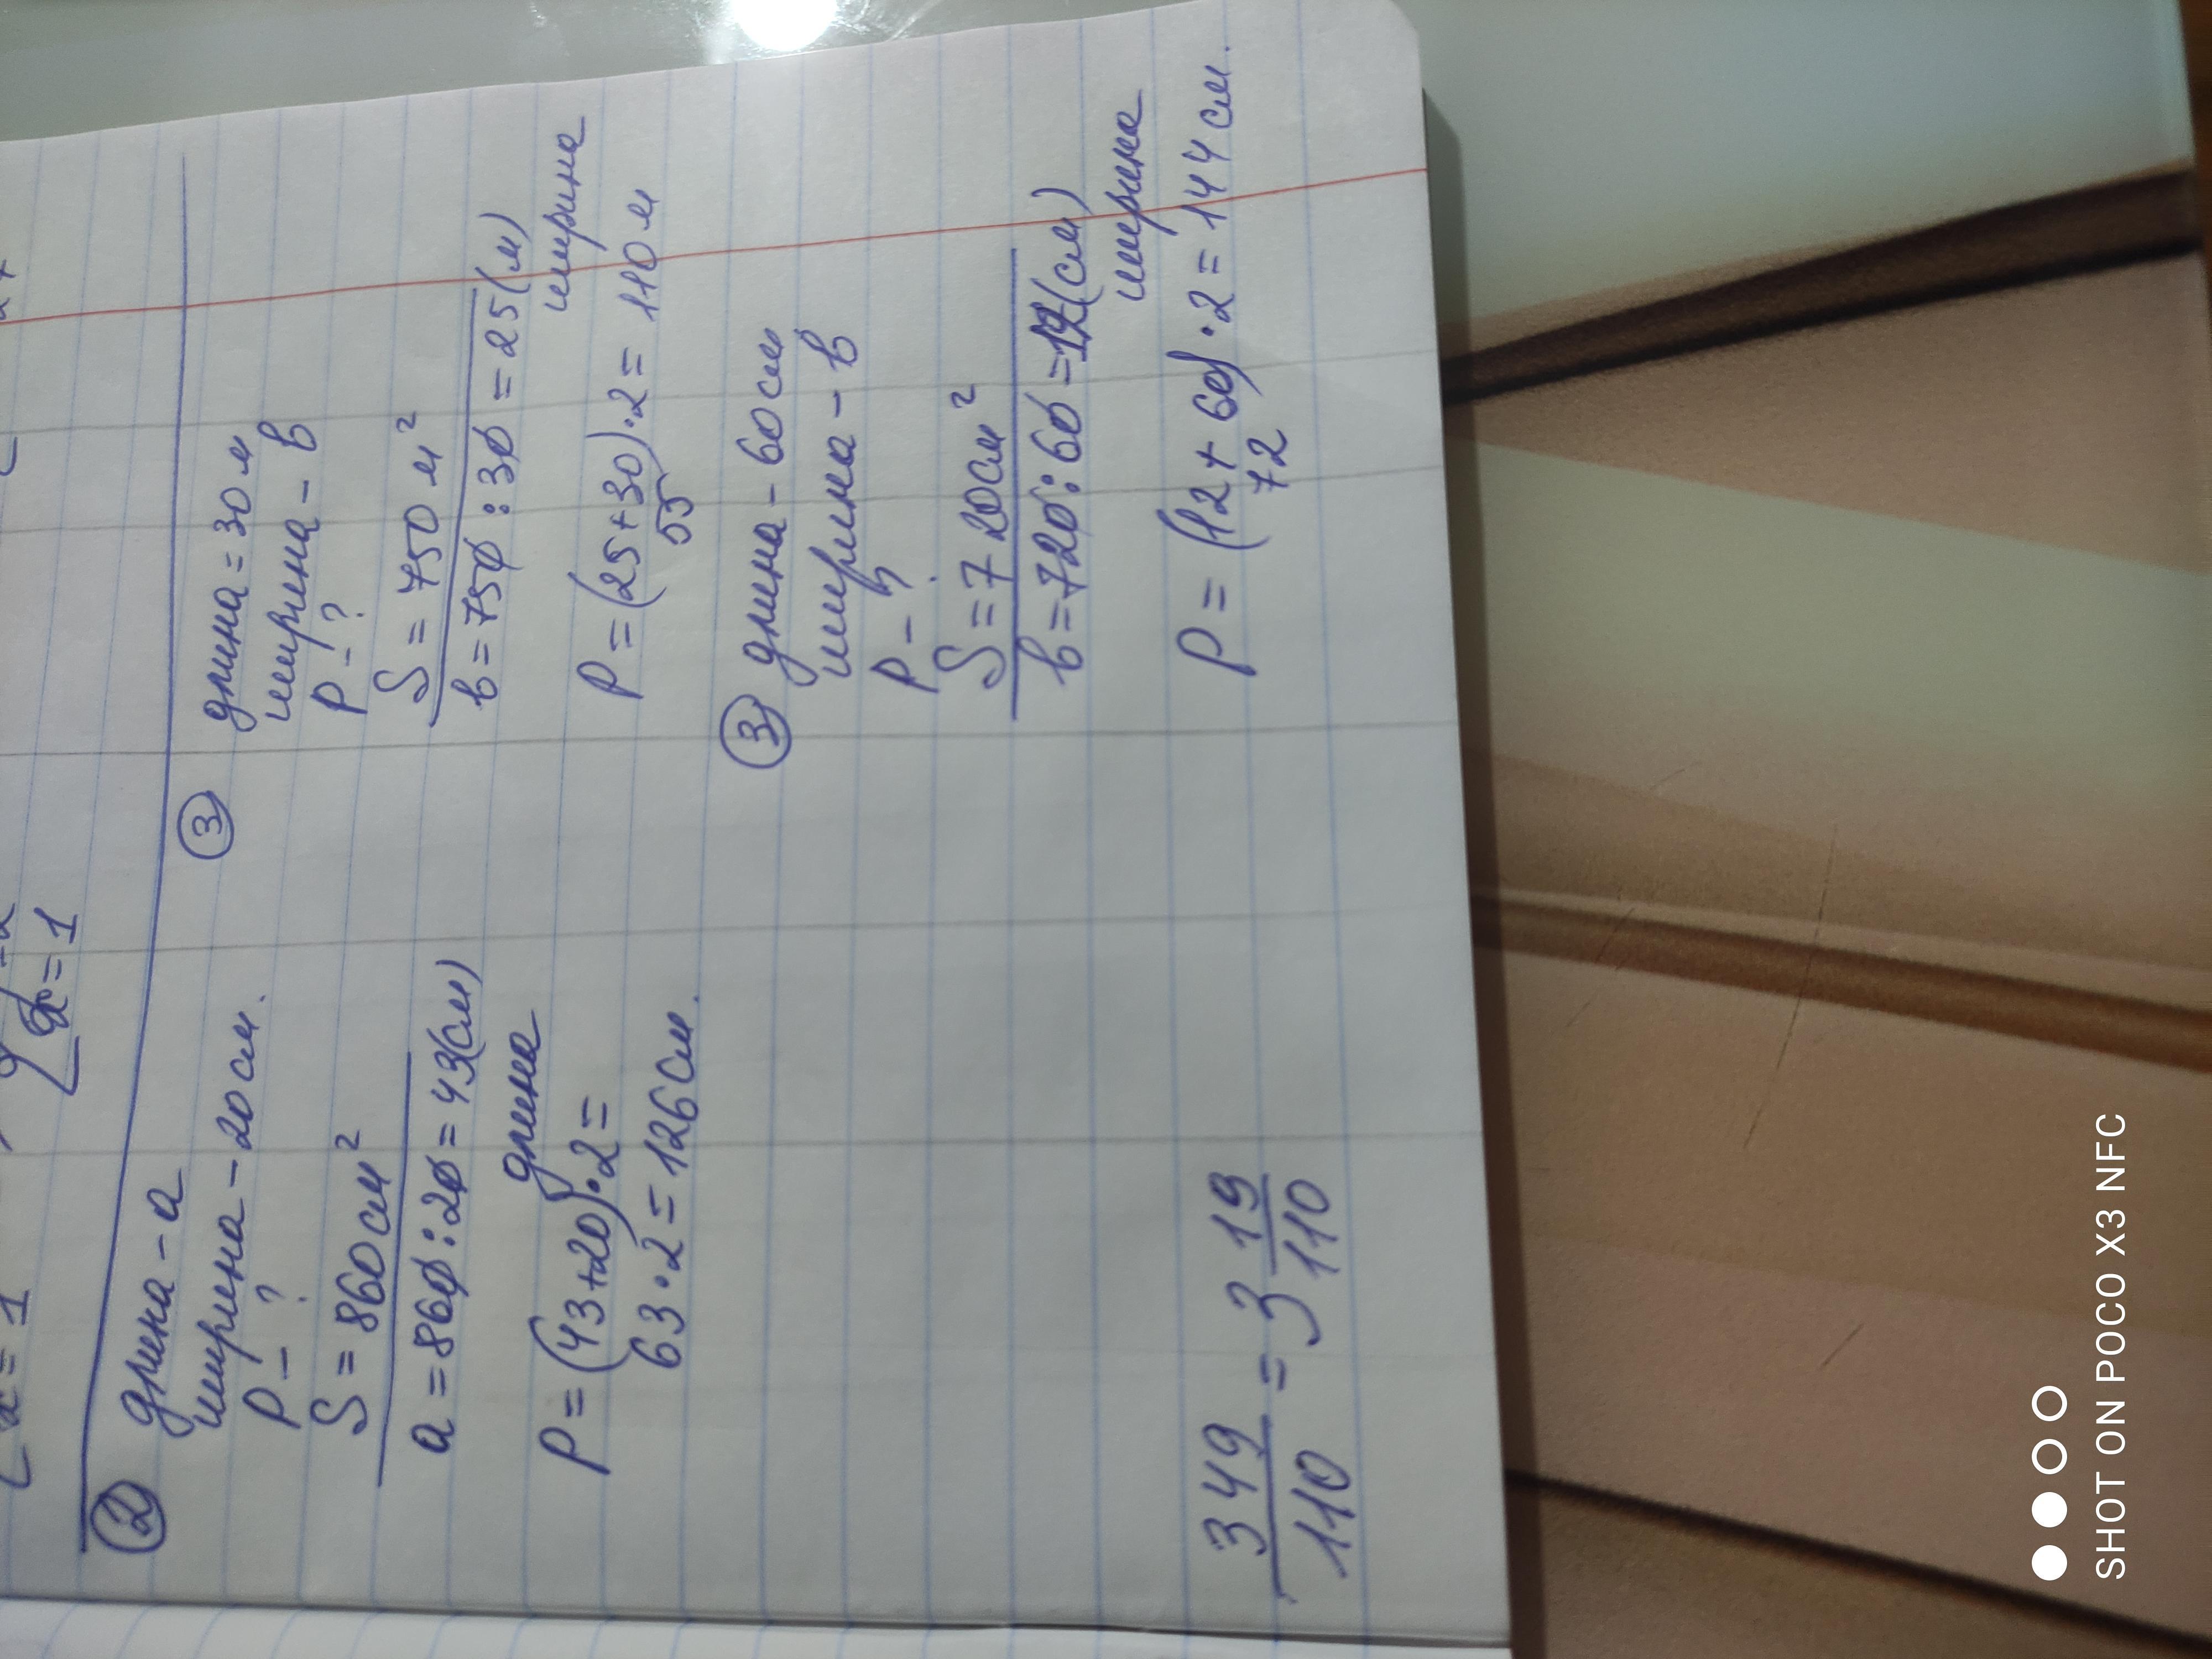 x = 1
x = 1
②
длина - a
ширина - 20 см.
P - ?
S = 860 см²
a = 860 : 20 = 43 (см)
длина
P = (43 + 20) · 2 =
63 · 2 = 126 см.
349/110 = 3 19/110
③
длина = 30 м
ширина - b
P - ?
S = 750 м²
b = 750 : 30 = 25 (м)
ширина
P = (25 + 30) · 2 = 110 м
55
③
длина - 60 см
ширина - b
P - ?
S = 720 см²
b = 720 : 60 = 12 (см)
ширина
P = (12 + 60) · 2 = 144 см.
72
SHOT ON POCO X3 NFC